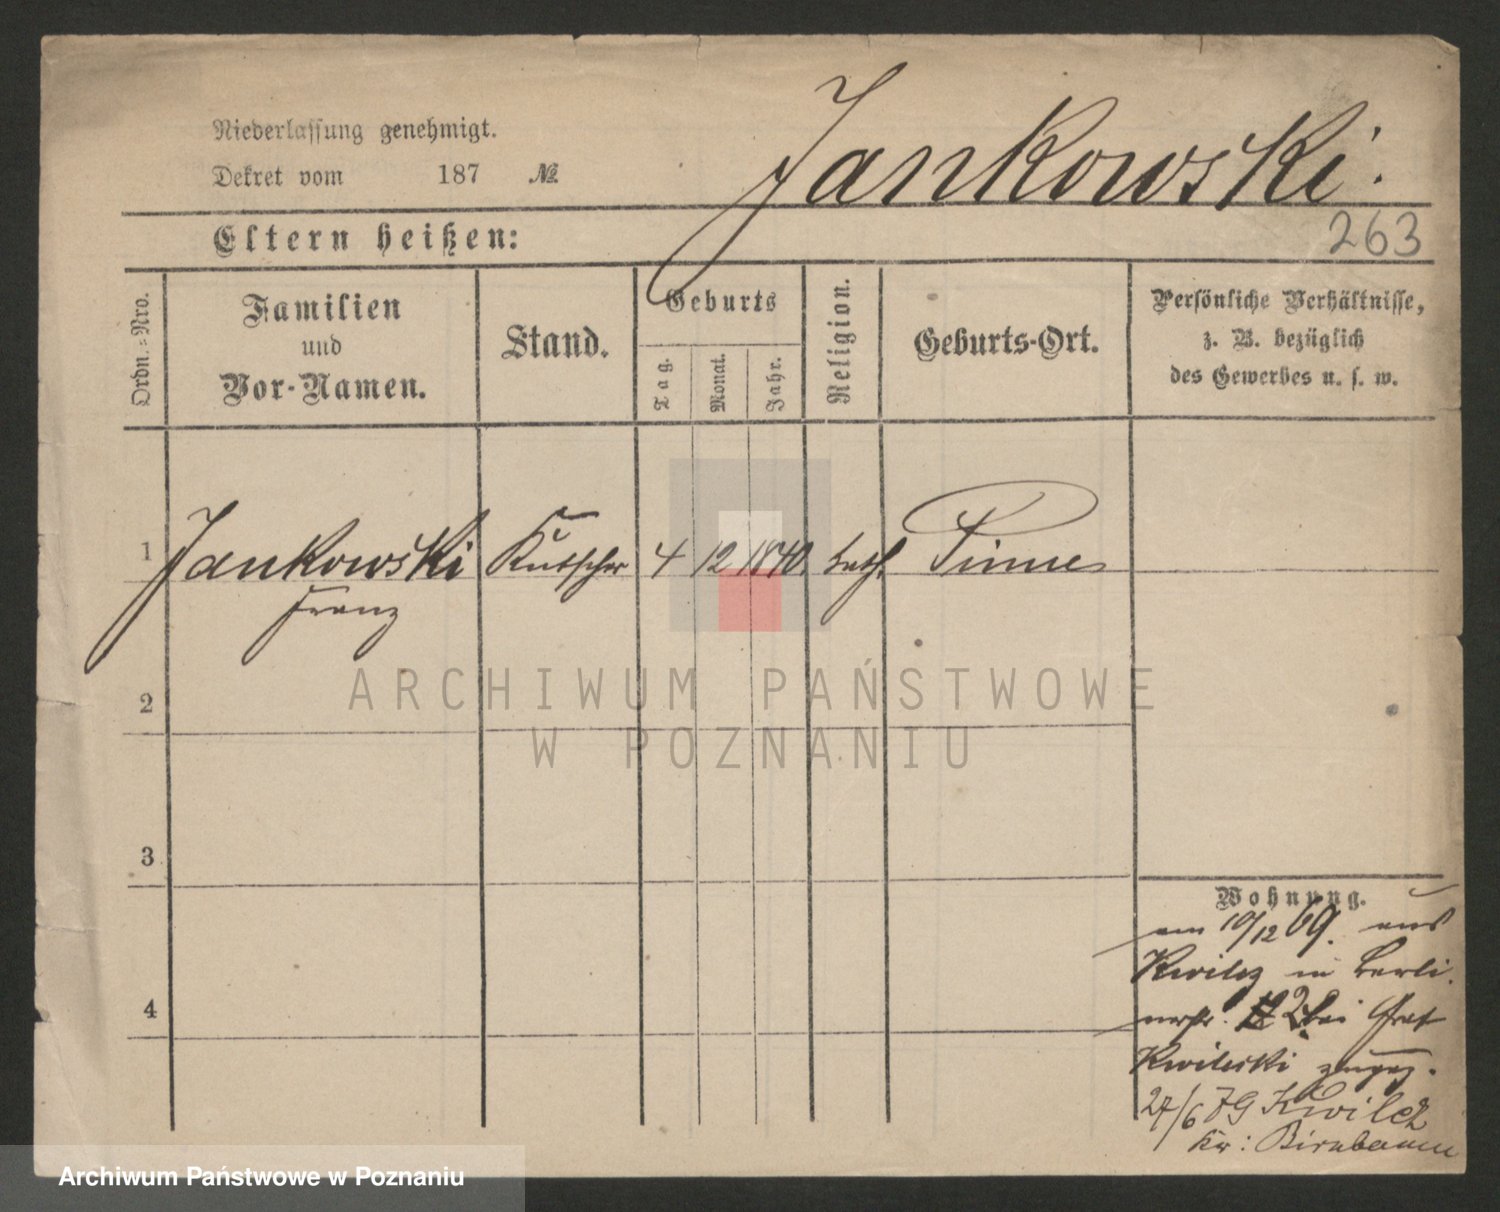 Niederlassung genehmigt.
Dekret vom 187 №
Jankowski.
263
Eltern heißen:
Ordn.-Nro.
Familien
und
Vor-Namen.
Stand.
Geburts
Tag.
Monat.
Jahr.
Religion.
Geburts-Ort.
Persönliche Verhältnisse,
z. B. bezüglich
des Gewerbes u. s. w.
1 Jankowski Kutscher 4 12 1840. kath. Pinne
Franz
2
3
4
Wohnung.
am 10/12 69. aus
Kwilcz in Berli.
nerstr. 12 bei Graf
Kwilecki zugez.
27/6 7G Kwilcz
Kr: Birnbaum
ARCHIWUM PAŃSTWOWE
W POZNANIU
Archiwum Państwowe w Poznaniu